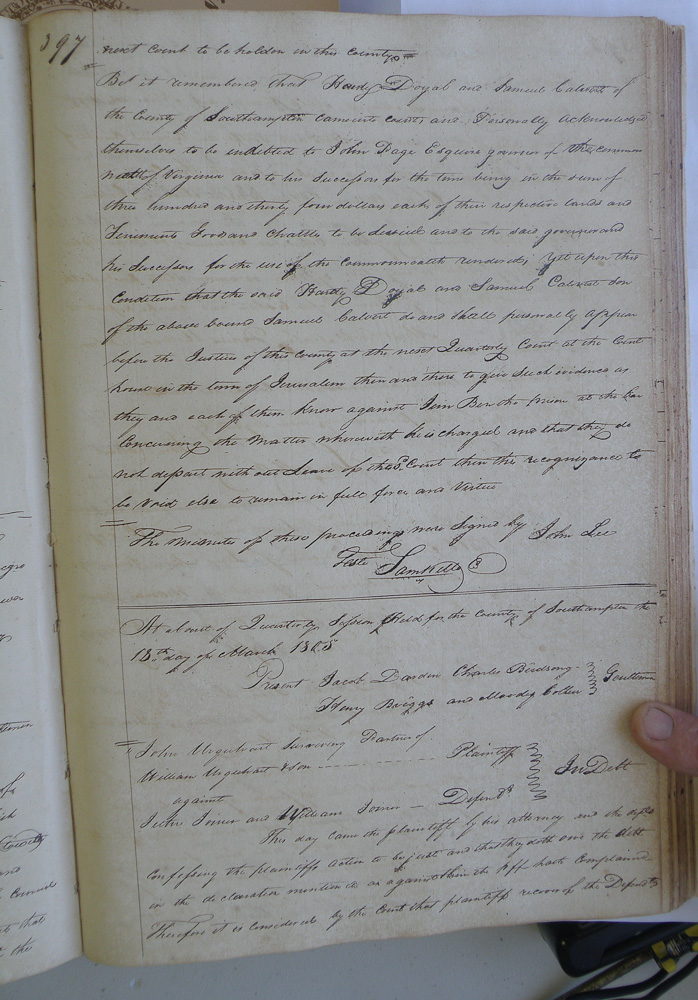 397
next Court to be holden in this County
Bet it remembered that Hardy Doyal and Samuel Calvert of
the County of Southampton came into court, and Personally acknowledged
themselves to be indebted to John Page Esquire governor of the common
wealth of Virginia and to his Successors for the time being in the sum of
three hundred and thirty four dollars each of their respective lands and
Tenements Goods and Chattles to be levied and to the said governor and
his Successors for the use of the Commonwealth rendered, yet upon this
Condition that the said Hardy Doyal and Samuel Calvert son
of the above bound Samuel Calvert do and shall personally appear
before the Justices of this County at the next Quarterly Court at the Court
house in the town of Jerusalem then and there to give Such evidence as
they and each of them know against Jem Ben the Prisoner at the bar
Concerning the matter wherewith he is charged and that they do
not depart without Leave of the sd. Court then this recognizance to
be void else to remain in full force and Virtue
The minutes of these proceedings were Signed by John Lee
Teste Saml Kello C
At a Court of Quarterly Session Held for the County of Southampton the
18th day of March 1805
Present Jacob Darden Charles Birdsong
Henry Briggs and Moody Cobb Gentlemen
John Urquhart Surviving Partner of
William Urquhart & son Plaintiff
In Debt
against
Joiner and William Joiner Defend.ts
This day came the plaintiff by his attorney and the defts
Confessing the plaintiffs action to be just and that they doth owe the debt
in the declaration mentioned as against them the plff hath Complained
Therefore it is considered by the Court that plaintiff recover of the Defend.ts